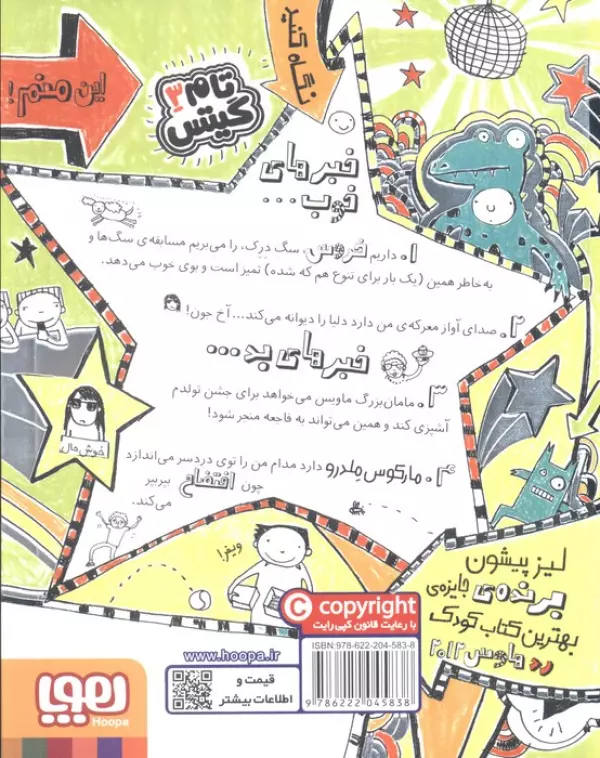 این منم!
نگاه کنید
تام ۳
گیتس
خبرهای
خوب...
۱. داریم خروس، سگ دِرِک، را می‌بریم مسابقه‌ی سگ‌ها و
به‌خاطر همین (یک بار برای تنوع هم که شده) تمیز است و بوی خوب می‌دهد.
۲. صدای آواز معرکه‌ی من دارد دلیا را دیوانه می‌کند... آخ جون!
خبرهای بد...
۳. مامان‌بزرگ ماویس می‌خواهد برای جشن تولدم
آشپزی کند و همین می‌تواند به فاجعه منجر شود!
۴. مارکوس مِلدرو دارد مدام من را توی دردسر می‌اندازد
چون افتضاح بپربپر
می‌کند.
خوش‌حال
ویفر!
لیز پیشون
برنده‌ی جایزه‌ی
بهترین کتاب کودک
رد هاوس ۲۰۱۲
© copyright
با رعایت قانون کپی‌رایت
ISBN: 978-622-204-583-8
9 786222 045838
www.hoopa.ir
قیمت و
اطلاعات بیشتر
هوپا
Hoopa